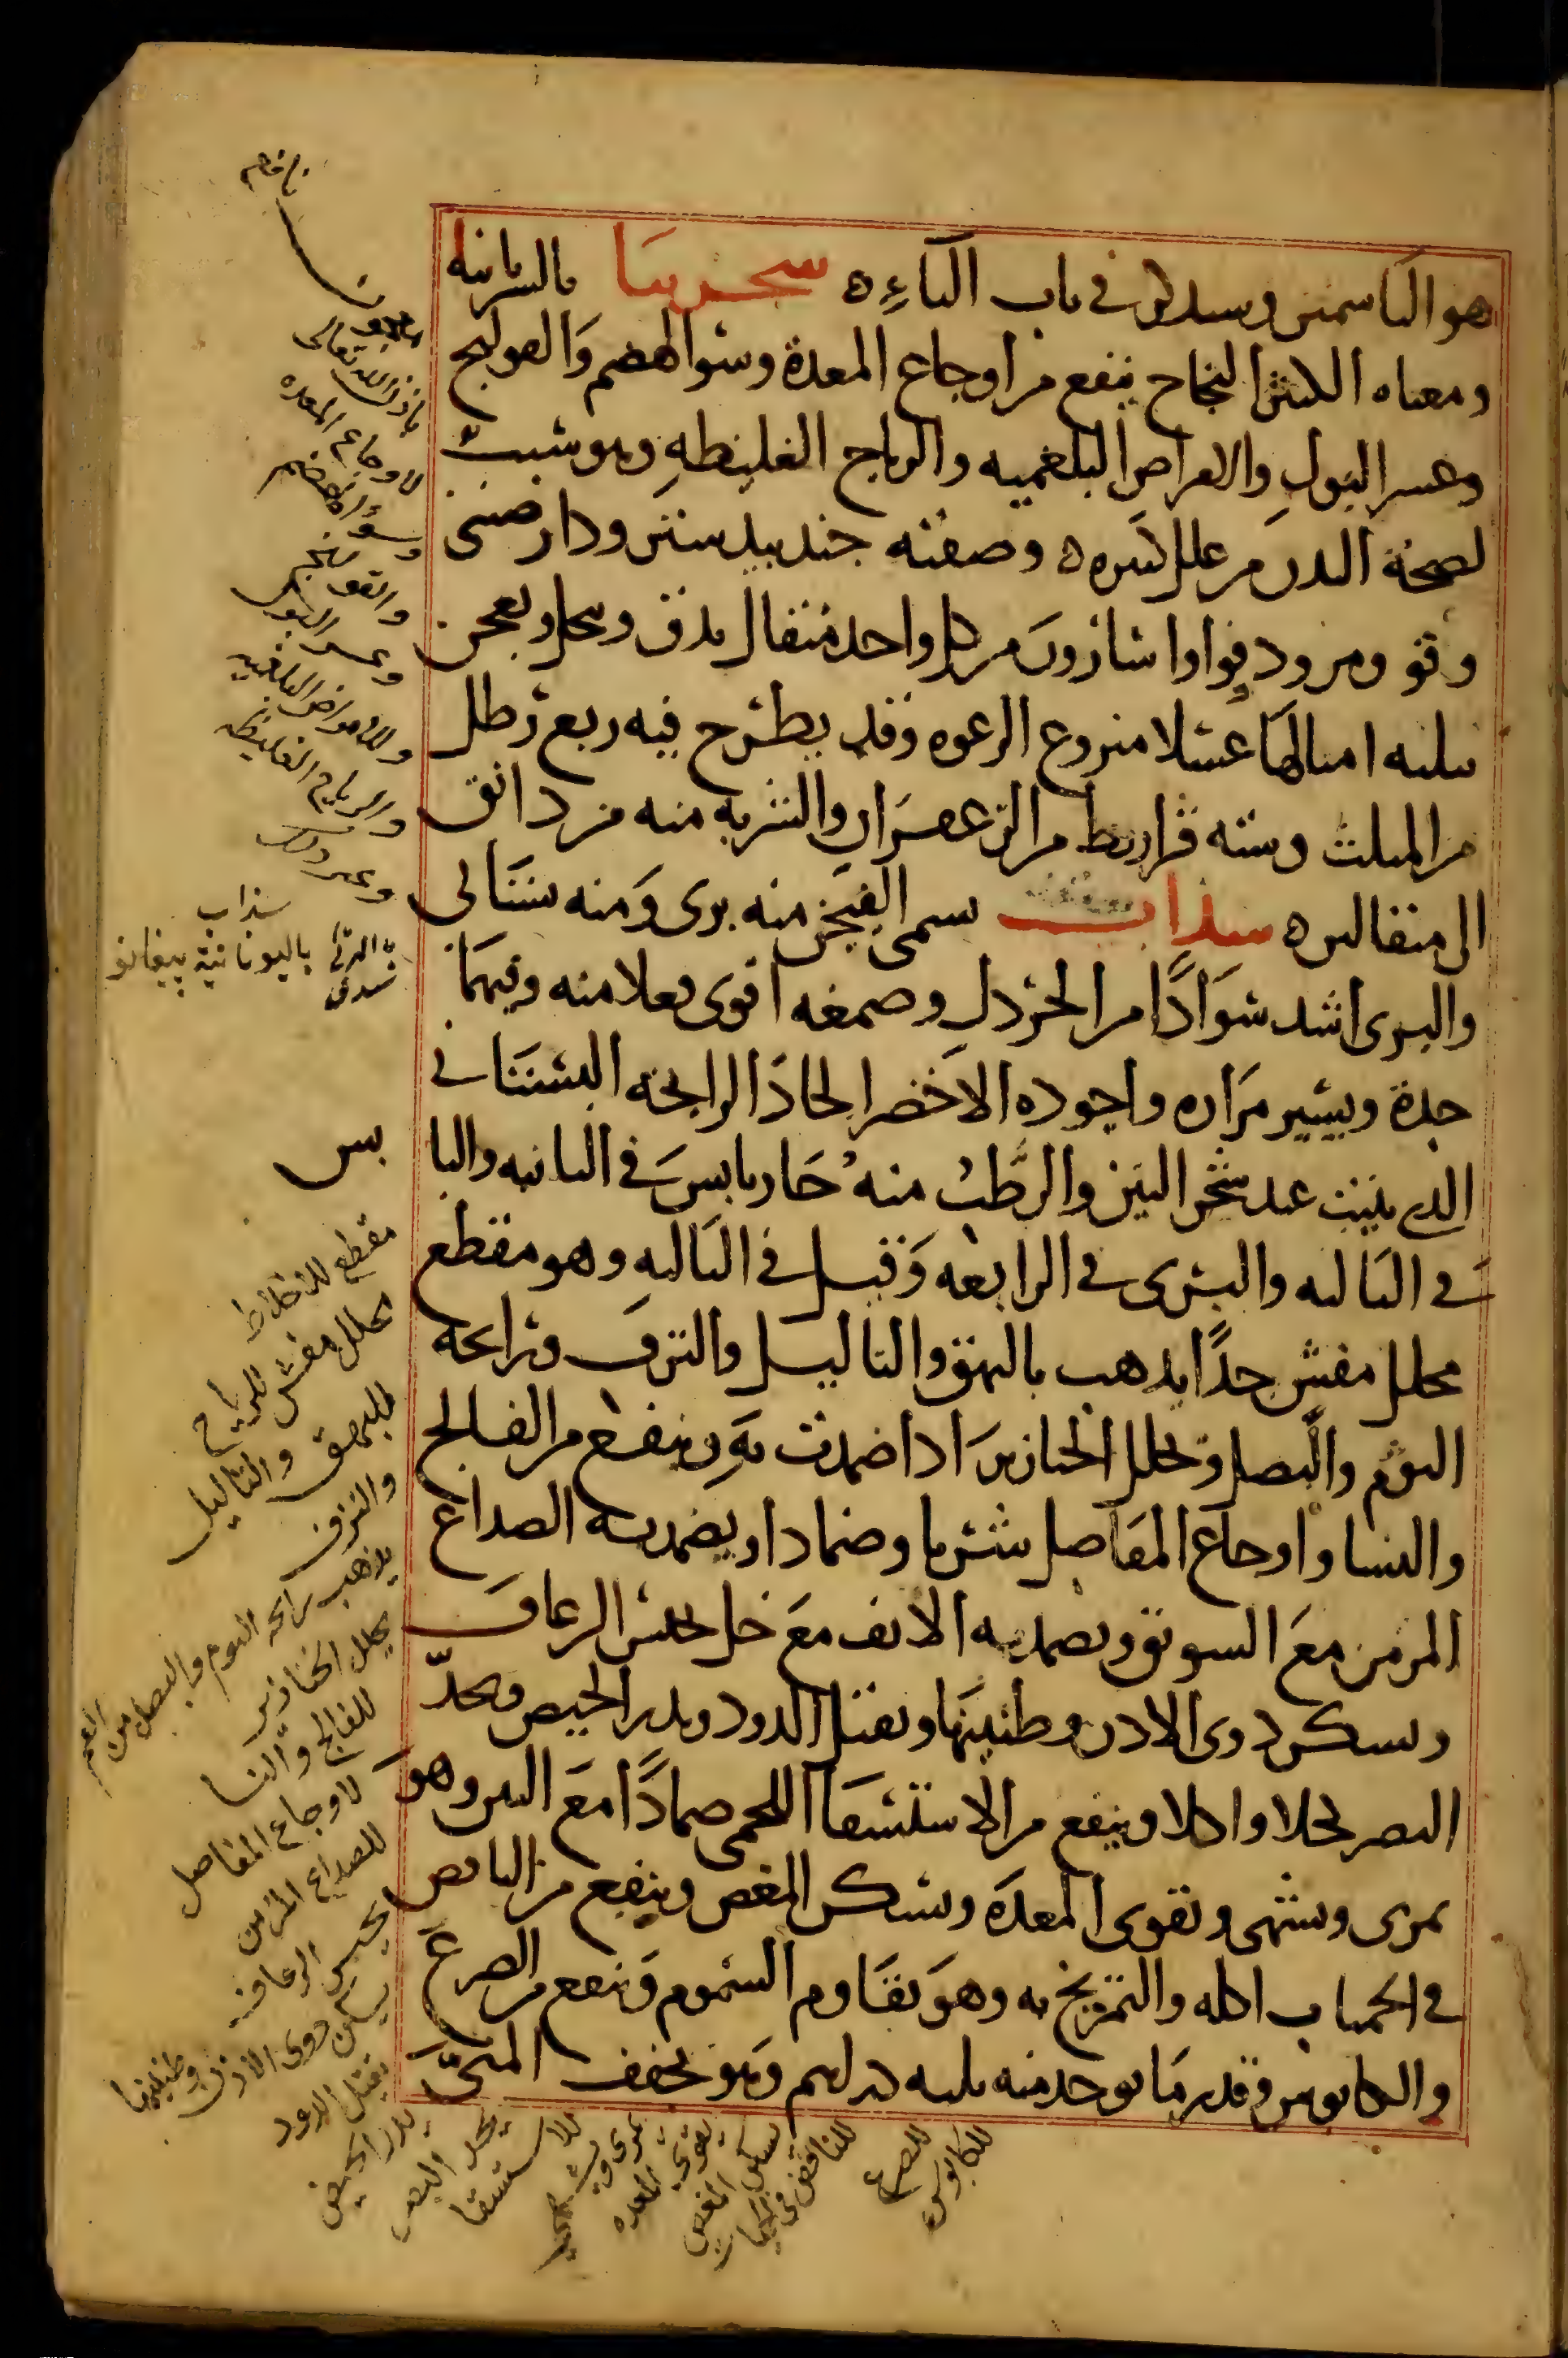 هو الياسمين وسيذكر في باب الياء ه سجزنيا بالسريانية
ومعناه الكثير النجاح ينفع من اوجاع المعدة وسوا الهضم والقولنج
وعسر البول والامراض البلغمية والرياح الغليظة وهو سبب
لصحة البدن من علل كثيرة ه وصفته جندبيدستر ودارصيني
وفو ومر ودوقوا واسارون من كل واحد مثقال يدق وينخل ويعجن
بثلثة امثالها عسلا منزوع الرغوة وقد يطرح فيه ربع رطل
من المثلث وستة قراريط من الزعفران والشربة منه من دانق
الى مثقالين ه سذاب يسمى الفيجن منه بري ومنه بستاني
والبري اشد سوادا من الخردل وصمغه اقوى فعلا منه وفيهما
حدة ويسير مرارة واجوده الاخضر الحاد الرايحة البستاني
الذي ينبت عند شجر التين والرطب منه حار يابس في الثانية واليا
في الثالثة والبري في الرابعة وقيل في الثالثة وهو مقطع
محلل مفش جدا يذهب بالبهق والثاليل والنزف ورايحة
الثوم والبصل ويحلل الخنازير اذا ضمدت به وينفع من الفالج
والنسا واوجاع المفاصل شربا وضمادا ويضمد به الصداع
المزمن مع السويق ويضمد به الانف مع خل لحبس الرعاف
ويسكن دوي الاذن وطنينها ويقتل الدود ويدر الحيض ويحد
البصر كحلا واكلا وينفع من الاستسقا اللحمي ضمادا مع التين وهو
يمري ويشهي ويقوي المعدة ويسكن المغص وينفع من النافض
في الحميات اكله والتمريخ به وهو يقاوم السموم وينفع من الصرع
والكابوس وقدر ما يوخذ منه ثلثة دراهم وهو يجفف المني
نافع
باذن الله تعالى
لاوجاع المعده
وسؤ الهضم
والقولنج
وعسر البول
وللامراض البلغميه
والرياح الغليظه
سذاب
باليونانية پيغانو
بس
مقطع للاخلاط
محلل مفش للرياح
للبهق والثاليل
والنزف
يذهب رايحه الثوم والبصل من الفم
يحلل الخنازير
للفالج والنسا
لاوجاع المفاصل
للصداع المزمن
لحبس الرعاف
يسكن دوي الاذن وطنينها
يقتل الدود
يدر الحيض
يحد البصر
للاستسقا
يمري ويشهي
يقوي المعده
يسكن المغص
للنافض في الحميات
للصرع
للكابوس